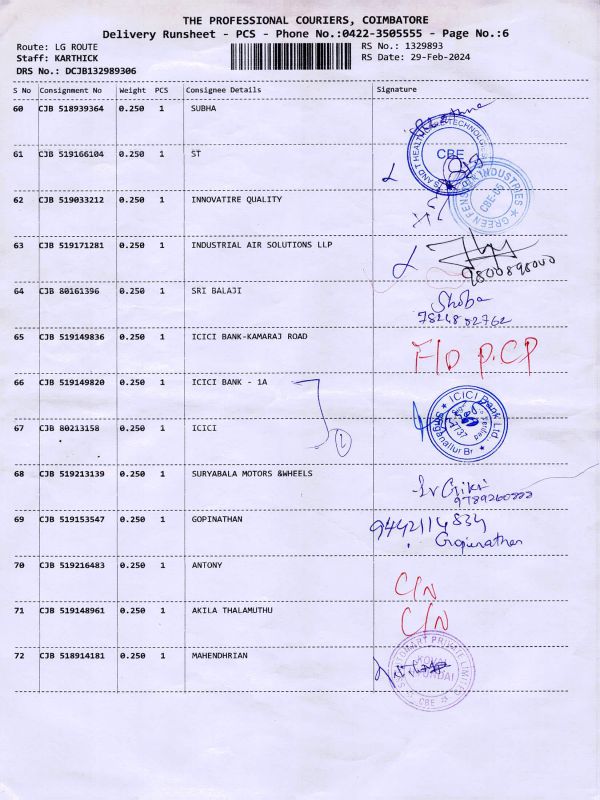 THE PROFESSIONAL COURIERS, COIMBATORE
Delivery Runsheet - PCS - Phone No.:0422-3505555 - Page No.:6
Route: LG ROUTE
RS No.: 1329893
Staff: KARTHICK
RS Date: 29-Feb-2024
DRS No.: DCJB132989306
S No Consignment No Weight PCS Consignee Details Signature
60 CJB 518939364 0.250 1 SUBHA
61 CJB 519166104 0.250 1 ST
CBE
62 CJB 519033212 0.250 1 INNOVATIRE QUALITY
GREEN INDUSTRIES
CBE-05
63 CJB 519171281 0.250 1 INDUSTRIAL AIR SOLUTIONS LLP
64 CJB 80161396 0.250 1 SRI BALAJI Shoba
65 CJB 519149836 0.250 1 ICICI BANK-KAMARAJ ROAD F/D P.CP
66 CJB 519149820 0.250 1 ICICI BANK - 1A
67 CJB 80213158 0.250 1 ICICI
ICICI Bank Ltd
Singanallur Br
68 CJB 519213139 0.250 1 SURYABALA MOTORS &WHEELS
69 CJB 519153547 0.250 1 GOPINATHAN 9442114834
Gopinathan
70 CJB 519216483 0.250 1 ANTONY C/N
71 CJB 519148961 0.250 1 AKILA THALAMUTHU C/N
72 CJB 518914181 0.250 1 MAHENDHRIAN
PRIVATE LIMITED
CBE